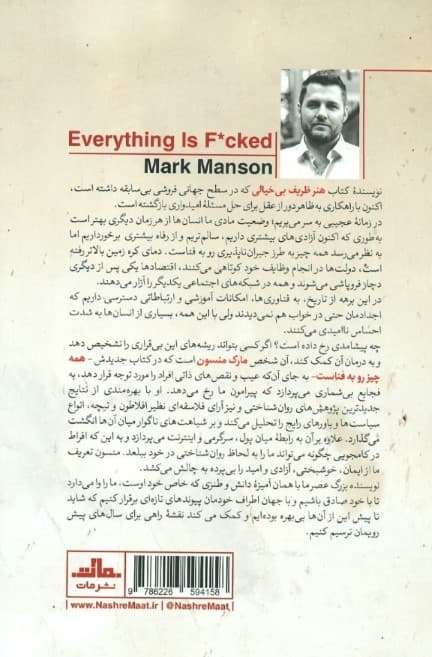 Everything Is F*cked
Mark Manson
نویسندهٔ کتاب هنر ظریف بی‌خیالی که در سطح جهانی فروشی بی‌سابقه داشته است،
اکنون با راهکاری به ظاهر دور از عقل برای حل مسئلهٔ امیدواری بازگشته است.
در زمانهٔ عجیبی به سر می‌بریم؛ وضعیت مادی ما انسان‌ها از هر زمان دیگری بهتر است
به‌طوری که اکنون آزادی‌های بیشتری داریم، سالم‌تریم و از رفاه بیشتری برخورداریم اما
به نظر می‌رسد همه چیز به طرز جبران‌ناپذیری رو به فناست. دمای کره زمین بالاتر رفته
است، دولت‌ها در انجام وظایف خود کوتاهی می‌کنند، اقتصادها یکی پس از دیگری
دچار فروپاشی می‌شوند و همه در شبکه‌های اجتماعی یکدیگر را آزار می‌دهند.
در این برهه از تاریخ، به فناوری‌ها، امکانات آموزشی و ارتباطاتی دسترسی داریم که
اجدادمان حتی در خواب هم نمی‌دیدند ولی با این همه، بسیاری از انسان‌ها به شدت
احساس ناامیدی می‌کنند.
چه پیشامدی رخ داده است؟ اگر کسی بتواند ریشه‌های این بی‌قراری را تشخیص دهد
و به درمان آن کمک کند، آن شخص مارک منسون است که در کتاب جدیدش - همه
چیز رو به فناست- به جای آن‌که عیب و نقص‌های ذاتی افراد را مورد توجه قرار دهد، به
فجایع بی‌شماری می‌پردازد که پیرامون ما رخ می‌دهد. او با بهره‌مندی از نتایج
جدیدترین پژوهش‌های روان‌شناختی و نیز آرای فلاسفه‌ای نظیر افلاطون و نیچه، انواع
سیاست‌ها و باورهای رایج را تحلیل می‌کند و بر شباهت‌های ناگوار میان آن‌ها انگشت
می‌گذارد. علاوه بر آن به رابطهٔ میان پول، سرگرمی و اینترنت می‌پردازد و به این که افراط
در کامجویی چگونه می‌تواند ما را به لحاظ روان‌شناختی در خود ببلعد. منسون تعریف
ما از ایمان، خوشبختی، آزادی و امید را بی‌پرده به چالش می‌کشد.
نویسنده بزرگ عصر ما با همان آمیزهٔ دانش و طنزی که خاص خود اوست، ما را وا می‌دارد
تا با خود صادق باشیم و با جهان اطراف خودمان پیوندهای تازه‌ای برقرار کنیم که شاید
تا پیش این از آن‌ها بی‌بهره بوده‌ایم و کمک می کند نقشهٔ راهی برای سال‌های پیش
رویمان ترسیم کنیم.
مات
نشر مات
9 786226 594158
www.NashreMaat.ir | @NashreMaat